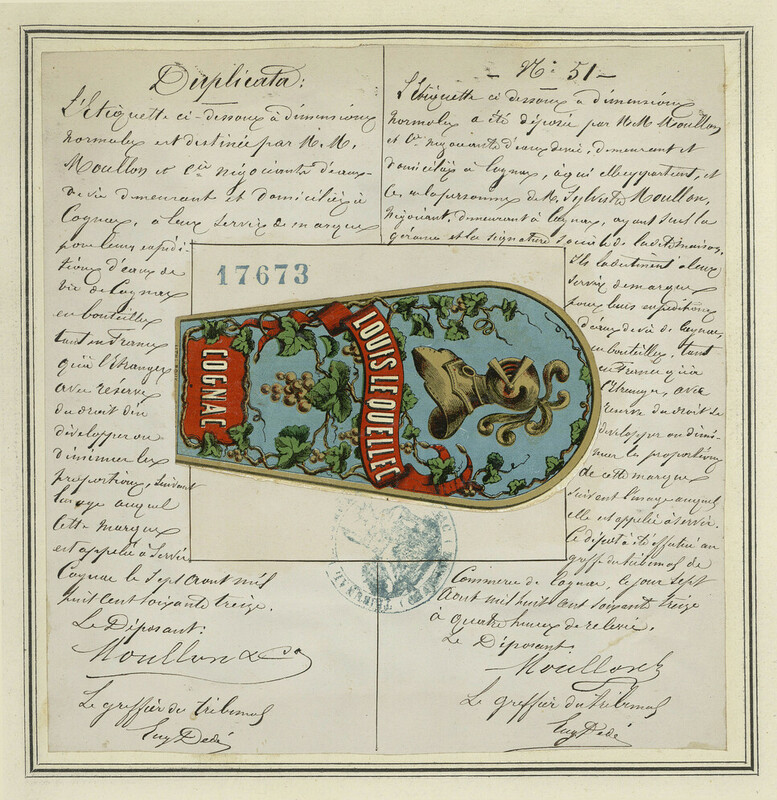 Duplicata:
L'Etiquette ci-dessous à dimensions
normales est destinée par M.M.
Moullon et Cie négociants d'eaux-
de-vie demeurant et domiciliés à
Cognac, à leur servir de marque
pour leurs expédi-
tions d'eaux de
vie de Cognac
en bouteilles
tant en France
qu'à l'Etranger
avec réserve
du droit d'en
développer ou
diminuer les
proportions, suivant
l'usage auquel
cette marque
est appelée à servir
Cognac le sept août mil
huit cent soixante treize.
Le Déposant:
Moullon & Co
Le greffier du tribunal
Eug Dedé
- No 51 -
L'étiquette ci dessous à dimensions
normales a été déposée par M.M Moullon
et Cie négociants d'eaux de vie, demeurant et
domiciliés à Cognac, à qui elle appartient, et
en la personne de M. Sylvestre Moullon,
négociant, demeurant à Cognac, ayant seul la
gérance et la signature sociale de la dite maison,
Ils la destinent à leur
servir de marque
pour leurs expéditions
d'eaux de vie de Cognac,
en bouteilles, tant
en France qu'à
l'Etranger, avec
réserve du droit de
développer ou dimi-
nuer les proportions
de cette marque
suivant l'usage auquel
elle est appelée à servir.
Le dépôt a été effectué au
greffe du tribunal de
Commerce de Cognac, le jour sept
août mil huit cent soixante treize
à quatre heures de relevée.
Le Déposant.
Moullon &
Le greffier du tribunal
Eug Dedé
17673
COGNAC
LOUIS LE QUELLEC